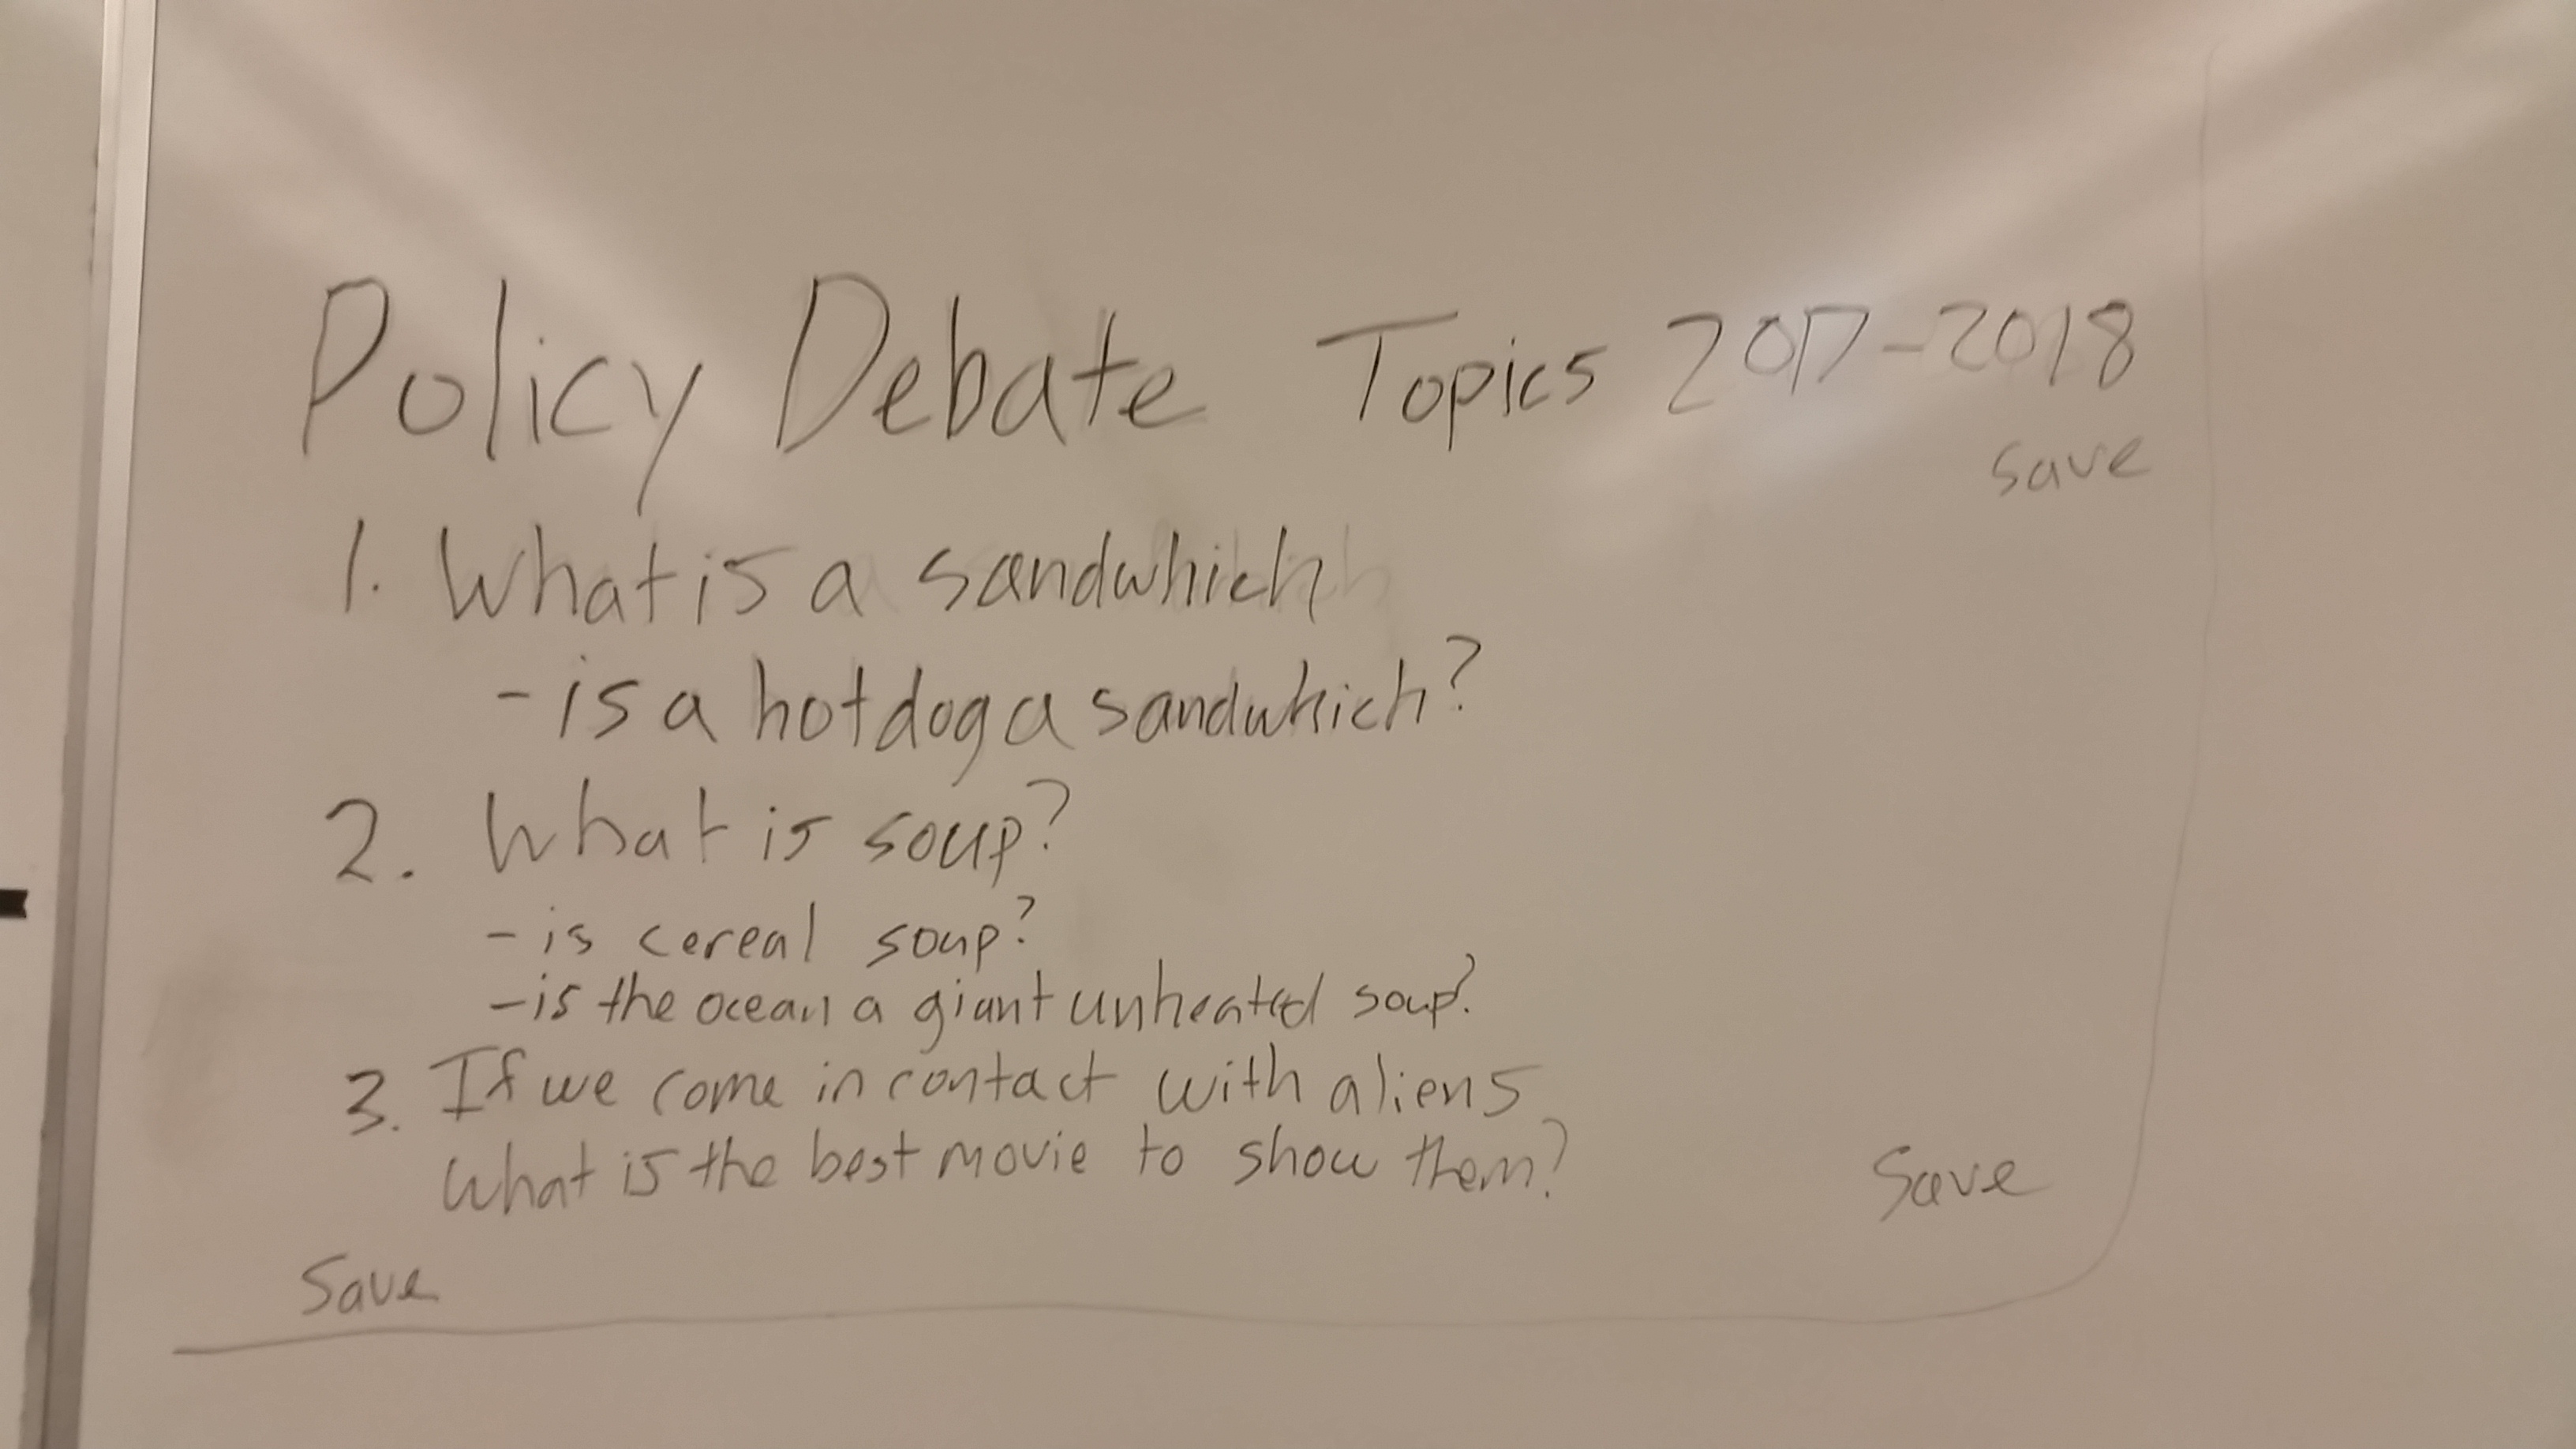 Policy Debate Topics 2017-2018
save
1. What is a sandwhich
- is a hotdog a sandwhich?
2. What is soup?
- is cereal soup?
- is the ocean a giant unheated soup?
3. If we come in contact with aliens
what is the best movie to show them?
Save
Save